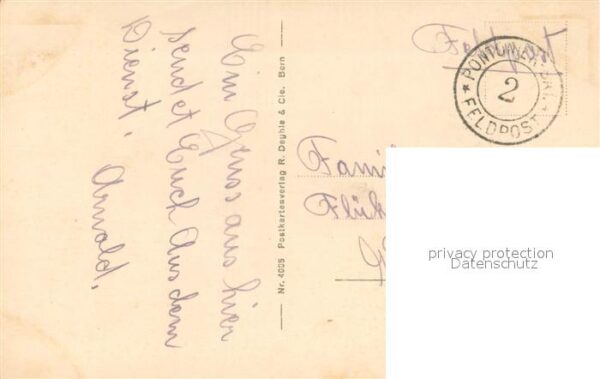 Ein Gruss aus hier
sendet Euch Aus dem
Dienst.
Arnold.
Nr. 4005 Postkartenverlag R. Deyhle & Cie. Bern
Feldpost
FELDPOST
2
Fami
Flük
privacy protection
Datenschutz